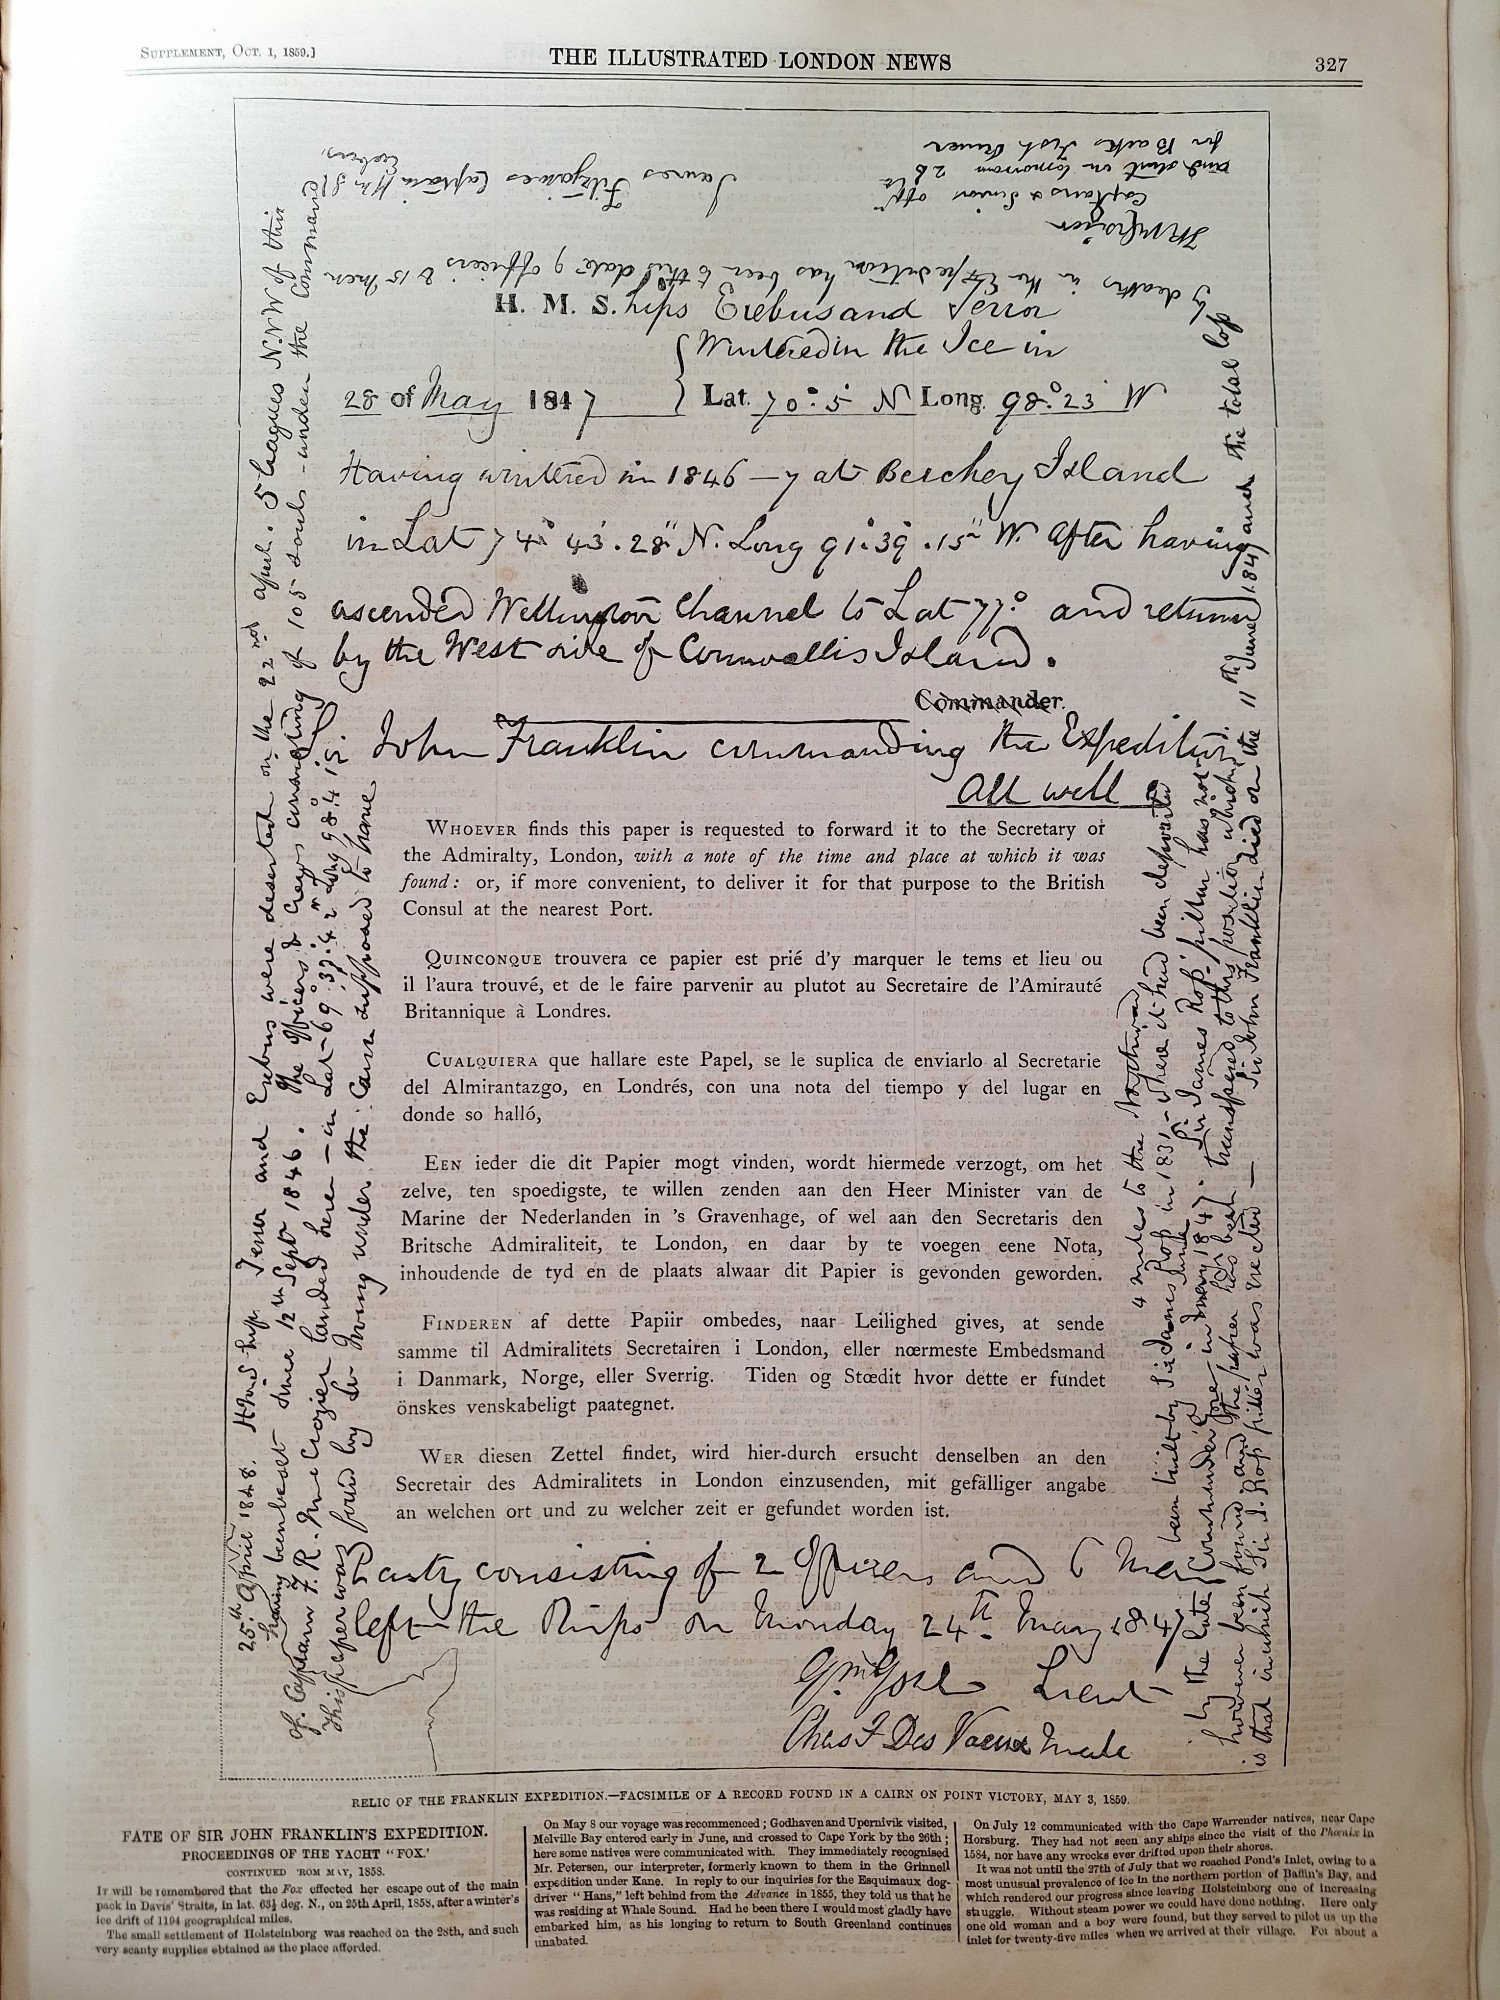 SUPPLEMENT, OCT. 1, 1859.]
THE ILLUSTRATED LONDON NEWS
327
H. M. S.hips Erebus and Terror
Wintered in the Ice in
28 of May 1847 Lat. 70° 5' N Long. 98° 23' W
Having wintered in 1846–7 at Beechey Island
in Lat 74° 43'. 28" N. Long 91° 39'. 15" W. after having
ascended Wellington Channel to Lat 77° and returned
by the West side of Cornwallis Island.
Commander.
John Franklin commanding the Expedition.
All well
WHOEVER finds this paper is requested to forward it to the Secretary of
the Admiralty, London, with a note of the time and place at which it was
found: or, if more convenient, to deliver it for that purpose to the British
Consul at the nearest Port.
QUINCONQUE trouvera ce papier est prié d'y marquer le tems et lieu ou
il l'aura trouvé, et de le faire parvenir au plutot au Secretaire de l'Amirauté
Britannique à Londres.
CUALQUIERA que hallare este Papel, se le suplica de enviarlo al Secretarie
del Almirantazgo, en Londrés, con una nota del tiempo y del lugar en
donde so halló,
EEN ieder die dit Papier mogt vinden, wordt hiermede verzogt, om het
zelve, ten spoedigste, te willen zenden aan den Heer Minister van de
Marine der Nederlanden in 's Gravenhage, of wel aan den Secretaris den
Britsche Admiraliteit, te London, en daar by te voegen eene Nota,
inhoudende de tyd en de plaats alwaar dit Papier is gevonden geworden.
FINDEREN af dette Papiir ombedes, naar Leilighed gives, at sende
samme til Admiralitets Secretairen i London, eller nœrmeste Embedsmand
i Danmark, Norge, eller Sverrig. Tiden og Stœdit hvor dette er fundet
önskes venskabeligt paategnet.
WER diesen Zettel findet, wird hier-durch ersucht denselben an den
Secretair des Admiralitets in London einzusenden, mit gefälliger angabe
an welchen ort und zu welcher zeit er gefundet worden ist.
Party consisting of 2 Officers and 6 Men
left the Ships on Monday 24th May 1847
Gm Gore Lieut
Chas F Des Voeux Mate
25th April 1848. HMShips Terror and Erebus were deserted on the 22nd April. 5 leagues NNW of this
having been beset since 12th Sept 1846. The Officers & Crews consisting of 105 souls – under the Command
of Captain F. R. M. Crozier landed here – in Lat – 69° 37' 42" Long 98° 41'
This paper was found by Lt Irving under the Cairn supposed to have
been built by Sir James Ross in 1831 – where it had been deposited
4 miles to the Northward
by the late Commander Gore in June May 1847. Sir James Ross' pillar has not
however been found and the paper has been transferred to this position which
is that in which Sir J. Ross pillar was erected – Sir John Franklin died on the 11th June 1847 and the total loss
by deaths in the Expedition has been to this date 9 officers & 15 men
James Fitzjames Captain HMS Erebus
F R M Crozier
Captain & Senior Offr
and start on tomorrow 26th
for Backs Fish River
RELIC OF THE FRANKLIN EXPEDITION.—FACSIMILE OF A RECORD FOUND IN A CAIRN ON POINT VICTORY, MAY 3, 1859.
FATE OF SIR JOHN FRANKLIN'S EXPEDITION.
PROCEEDINGS OF THE YACHT "FOX.'
CONTINUED 'ROM MAY, 1858.
IT will be remembered that the Fox effected her escape out of the main
pack in Davis' Straits, in lat. 63½ deg. N., on 25th April, 1858, after a winter's
ice drift of 1194 geographical miles.
The small settlement of Holsteinborg was reached on the 28th, and such
very scanty supplies obtained as the place afforded.
On May 8 our voyage was recommenced; Godhaven and Upernivik visited,
Melville Bay entered early in June, and crossed to Cape York by the 26th;
here some natives were communicated with. They immediately recognised
Mr. Petersen, our interpreter, formerly known to them in the Grinnell
expedition under Kane. In reply to our inquiries for the Esquimaux dog-
driver "Hans," left behind from the Advance in 1855, they told us that he
was residing at Whale Sound. Had he been there I would most gladly have
embarked him, as his longing to return to South Greenland continues
unabated.
On July 12 communicated with the Cape Warrender natives, near Cape
Horsburg. They had not seen any ships since the visit of the Phœnix in
1584, nor have any wrecks ever drifted upon their shores.
It was not until the 27th of July that we reached Pond's Inlet, owing to a
most unusual prevalence of ice in the northern portion of Baffin's Bay, and
which rendered our progress since leaving Holsteinborg one of increasing
stuggle. Without steam power we could have done nothing. Here only
one old woman and a boy were found, but they served to pilot us up the
inlet for twenty-five miles when we arrived at their village. For about a